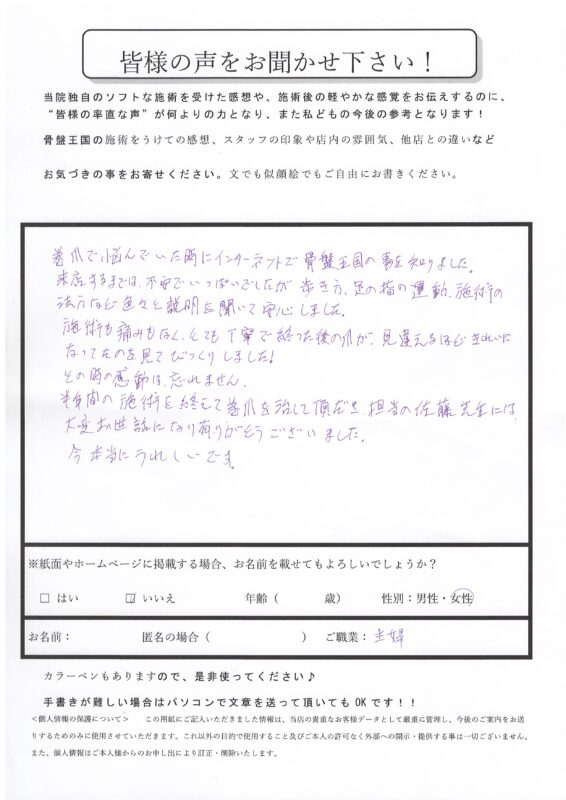 皆様の声をお聞かせ下さい！
当院独自のソフトな施術を受けた感想や、施術後の軽やかな感覚をお伝えするのに、
“皆様の率直な声”が何よりの力となり、また私どもの今後の参考となります！
骨盤王国の施術をうけての感想、スタッフの印象や店内の雰囲気、他店との違いなど
お気づきの事をお寄せください。文でも似顔絵でもご自由にお書きください。
巻爪で悩んでいた時にインターネットで骨盤王国の事を知りました。
来店するまでは、不安でいっぱいでしたが歩き方、足の指の運動、施術の
方法など色々と説明を聞いて安心しました。
施術も痛みもなく、とても丁寧で終った後の爪が、見違えるほどきれいに
なってたのを見てびっくりしました!
その時の感動は、忘れません。
半年間の施術を終えて巻爪を治して頂だき、担当の佐藤先生には、
大変お世話になり有りがとうございました。
今本当にうれしいです。
※紙面やホームページに掲載する場合、お名前を載せてもよろしいでしょうか？
□ はい □ いいえ 年齢（ 歳） 性別：男性・女性
お名前： 匿名の場合（ ） ご職業：主婦
カラーペンもありますので、是非使ってください♪
手書きが難しい場合はパソコンで文章を送って頂いてもOKです！！
＜個人情報の保護について＞ この用紙にご記入いただきました情報は、当店の貴重なお客様データとして厳重に管理し、今後のご案内をお送
りするためのみに使用させていただきます。これ以外の目的で使用すること及びご本人の許可なく外部への開示・提供する事は一切ございません。
また、個人情報はご本人様からのお申し出により訂正・削除いたします。